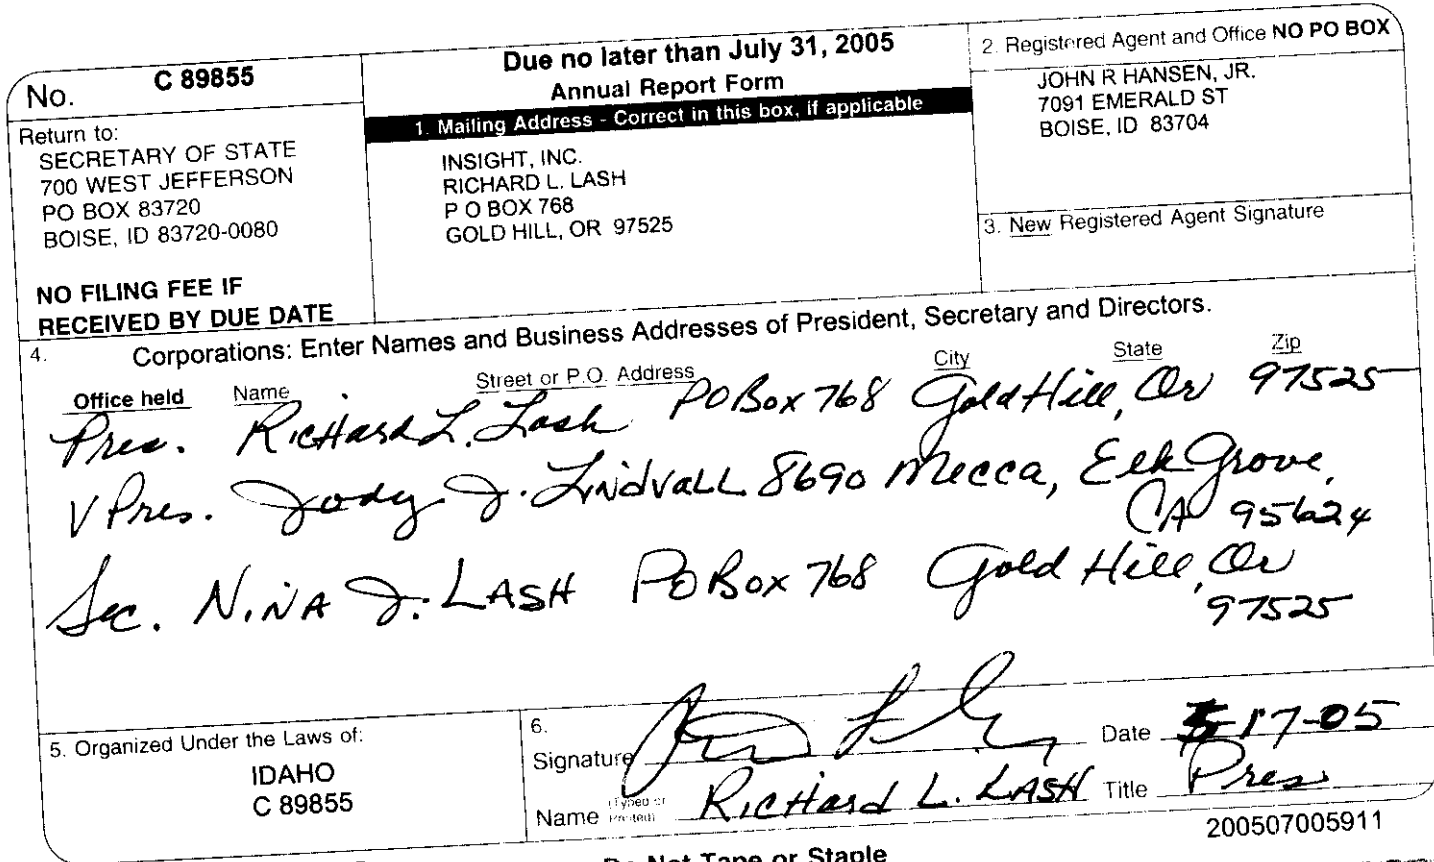 No. C 89855
Return to:
SECRETARY OF STATE
700 WEST JEFFERSON
PO BOX 83720
BOISE, ID 83720-0080
NO FILING FEE IF
RECEIVED BY DUE DATE
Due no later than July 31, 2005
Annual Report Form
1. Mailing Address - Correct in this box, if applicable
INSIGHT, INC.
RICHARD L. LASH
P O BOX 768
GOLD HILL, OR 97525
2. Registered Agent and Office NO PO BOX
JOHN R HANSEN, JR.
7091 EMERALD ST
BOISE, ID 83704
3. New Registered Agent Signature
4. Corporations: Enter Names and Business Addresses of President, Secretary and Directors.
Office held Name Street or P.O. Address City State Zip
Pres. Richard L. Lash PO Box 768 Gold Hill, Or 97525
V Pres. Jody J. Lindvall 8690 Mecca, Elk Grove,
CA 95624
Sec. Nina J. LASH PO Box 768 Gold Hill, Or
97525
5. Organized Under the Laws of:
IDAHO
C 89855
6.
Signature Date 5-17-05
Name (Typed or Printed) Richard L. LASH Title Pres
200507005911
Do Not Tape or Staple